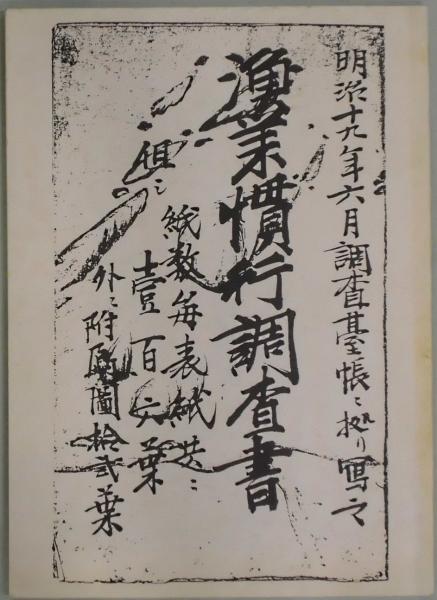 明治十九年六月調査臺帳ニ拠リ寫之
漁業慣行調査書
但シ
紙数毎表紙共ニ
壹百六葉
外ニ附属圖拾弍葉